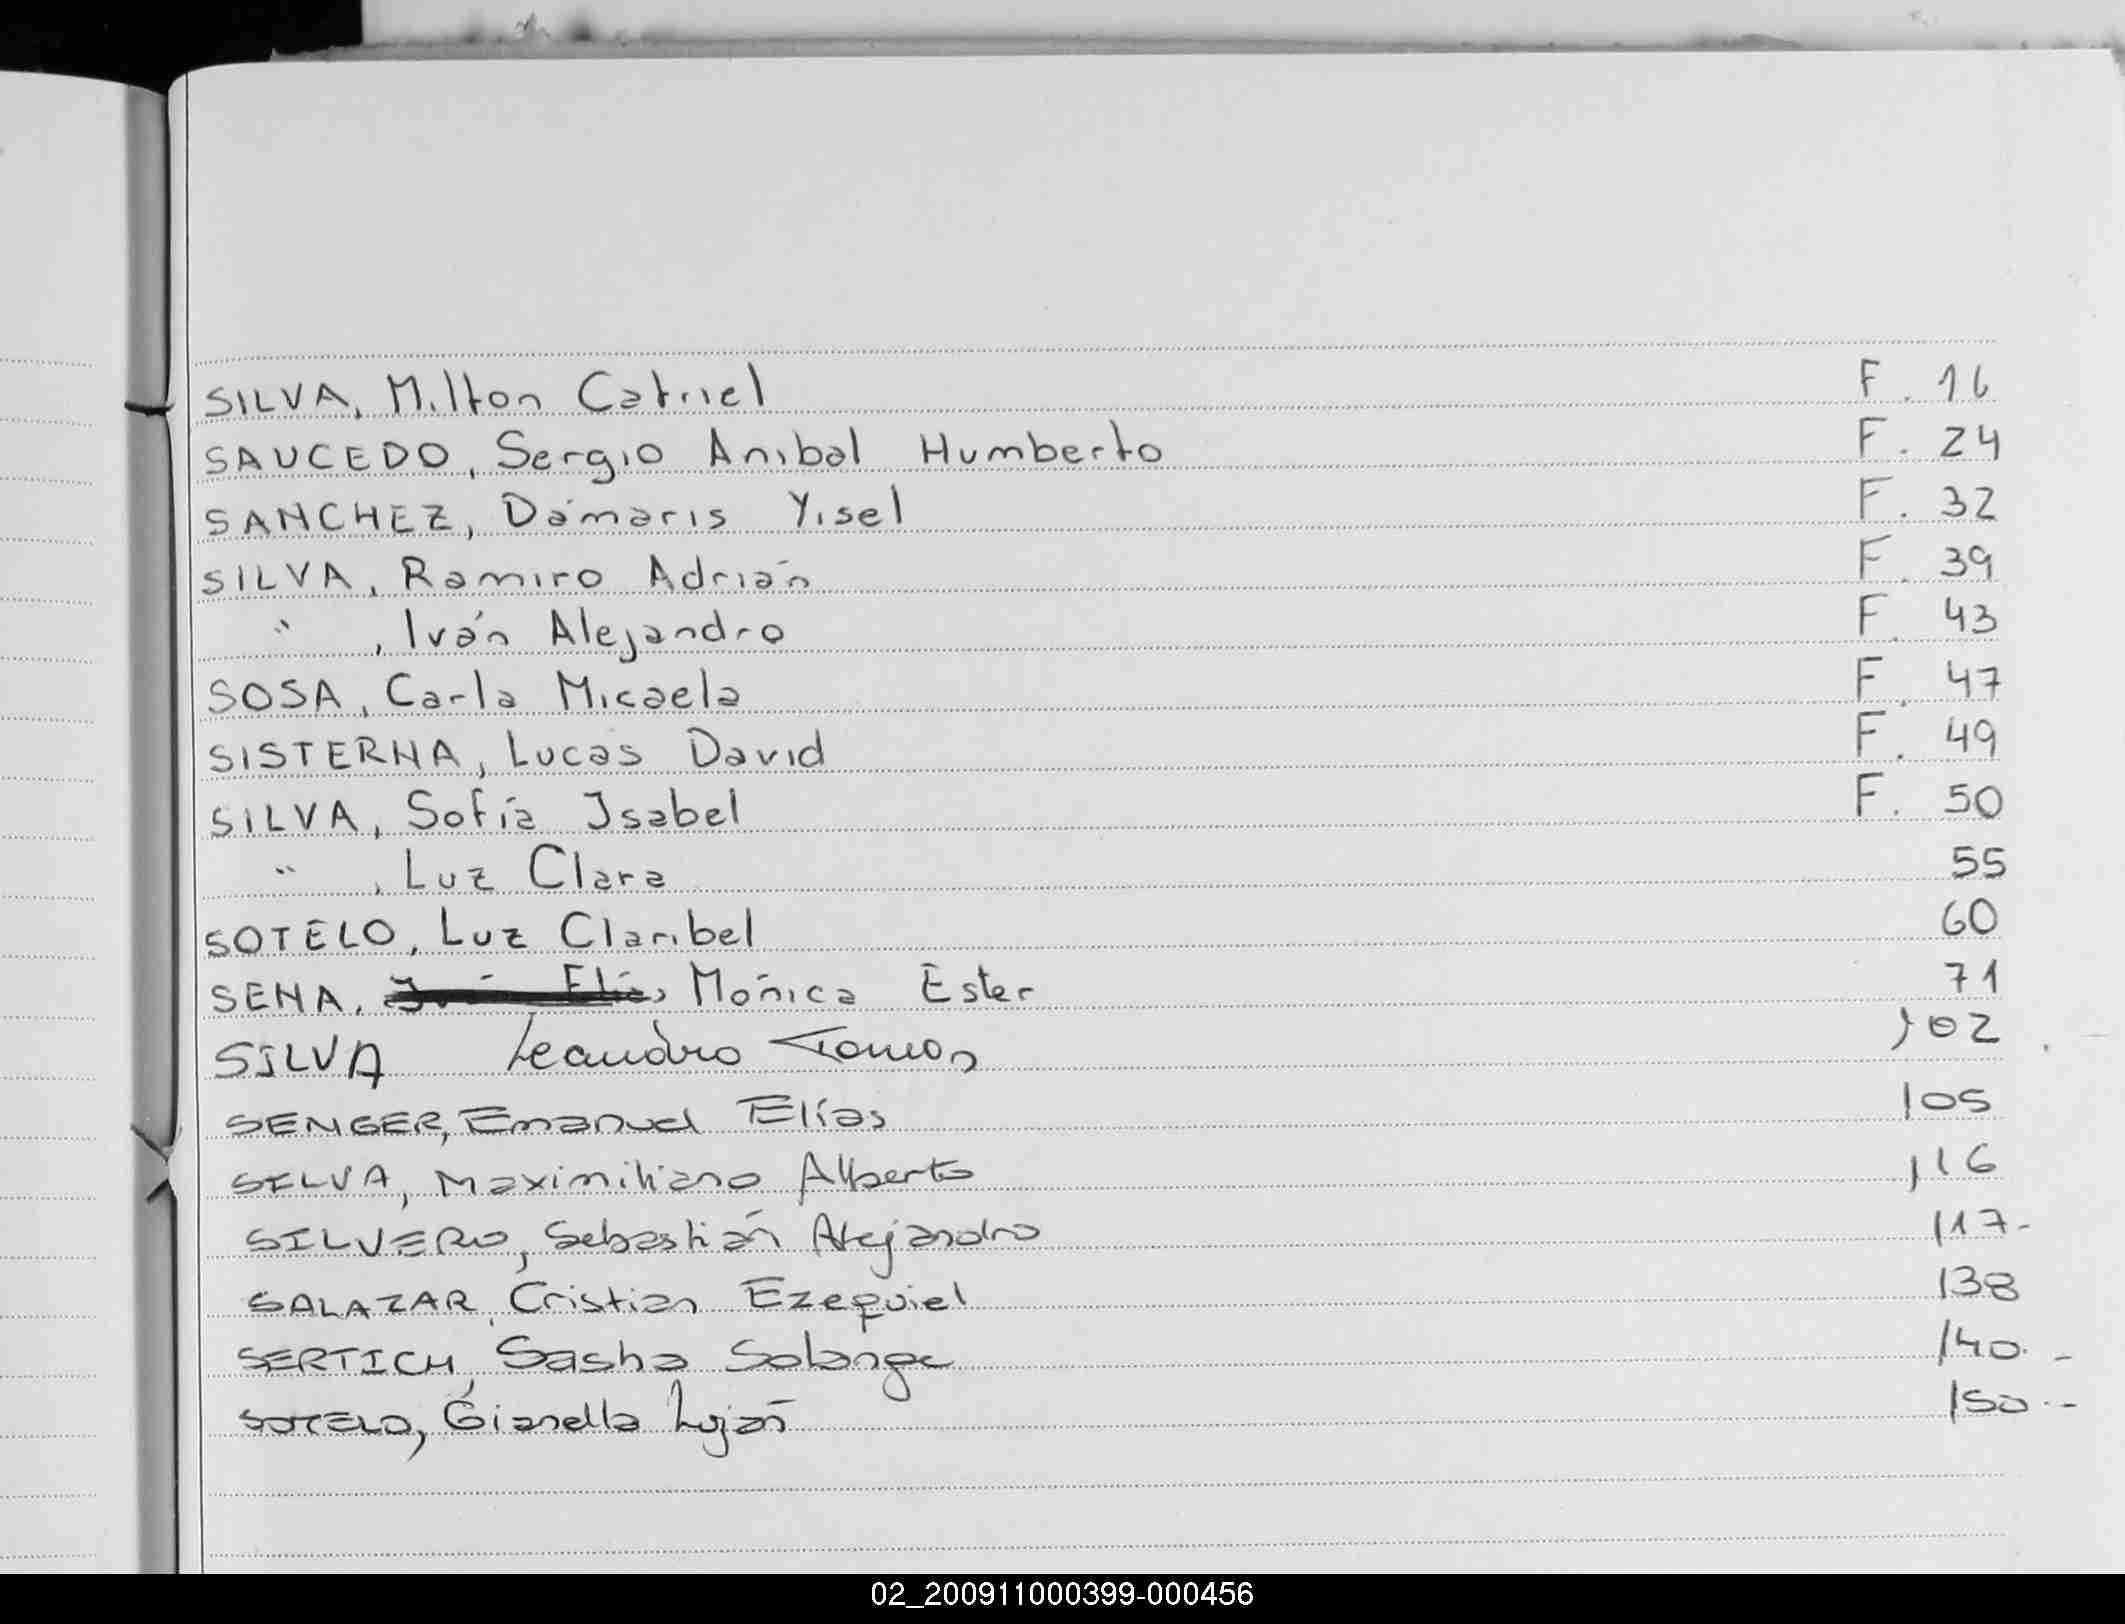 SILVA, Milton Catriel F. 16
SAUCEDO, Sergio Anibal Humberto F. 24
SANCHEZ, Dámaris Yisel F. 32
SILVA, Ramiro Adrián F. 39
" , Iván Alejandro F. 43
SOSA, Carla Micaela F. 47
SISTERNA, Lucas David F. 49
SILVA, Sofía Isabel F. 50
" , Luz Clara 55
SOTELO, Luz Claribel 60
SENA, Mónica Ester 71
SILVA Leandro 102
SENGER, Emanuel Elías 105
SILVA, Maximiliano Alberto 116
SILVERO, Sebastián Alejandro 117-
SALAZAR, Cristian Ezequiel 138
SERTICH, Sasha Solange 140. -
SOTELO, Gianella Luján 150 . -
02_200911000399-000456